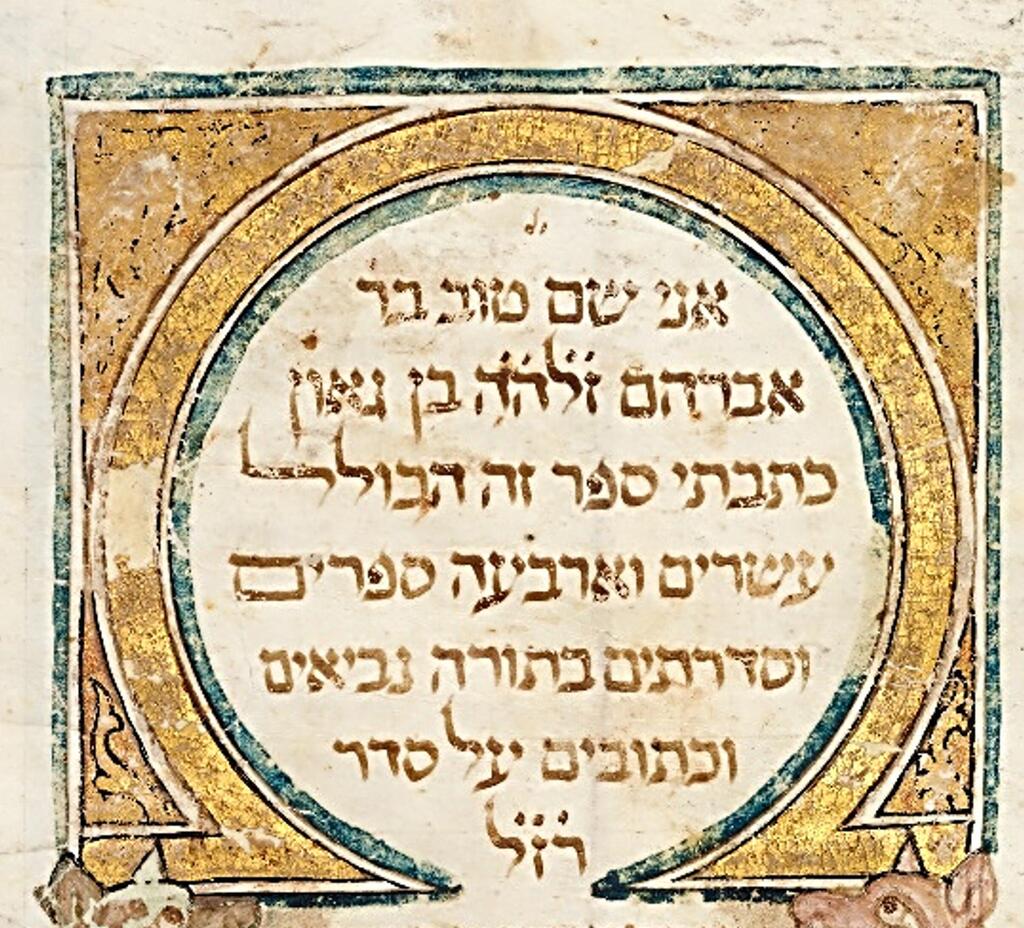 אני שם טוב בר
אברהם זלהה בן גאון
כתבתי ספר זה הכולל
עשרים וארבעה ספרים
וסדרתים בתורה נביאים
וכתובים על סדר
רזל